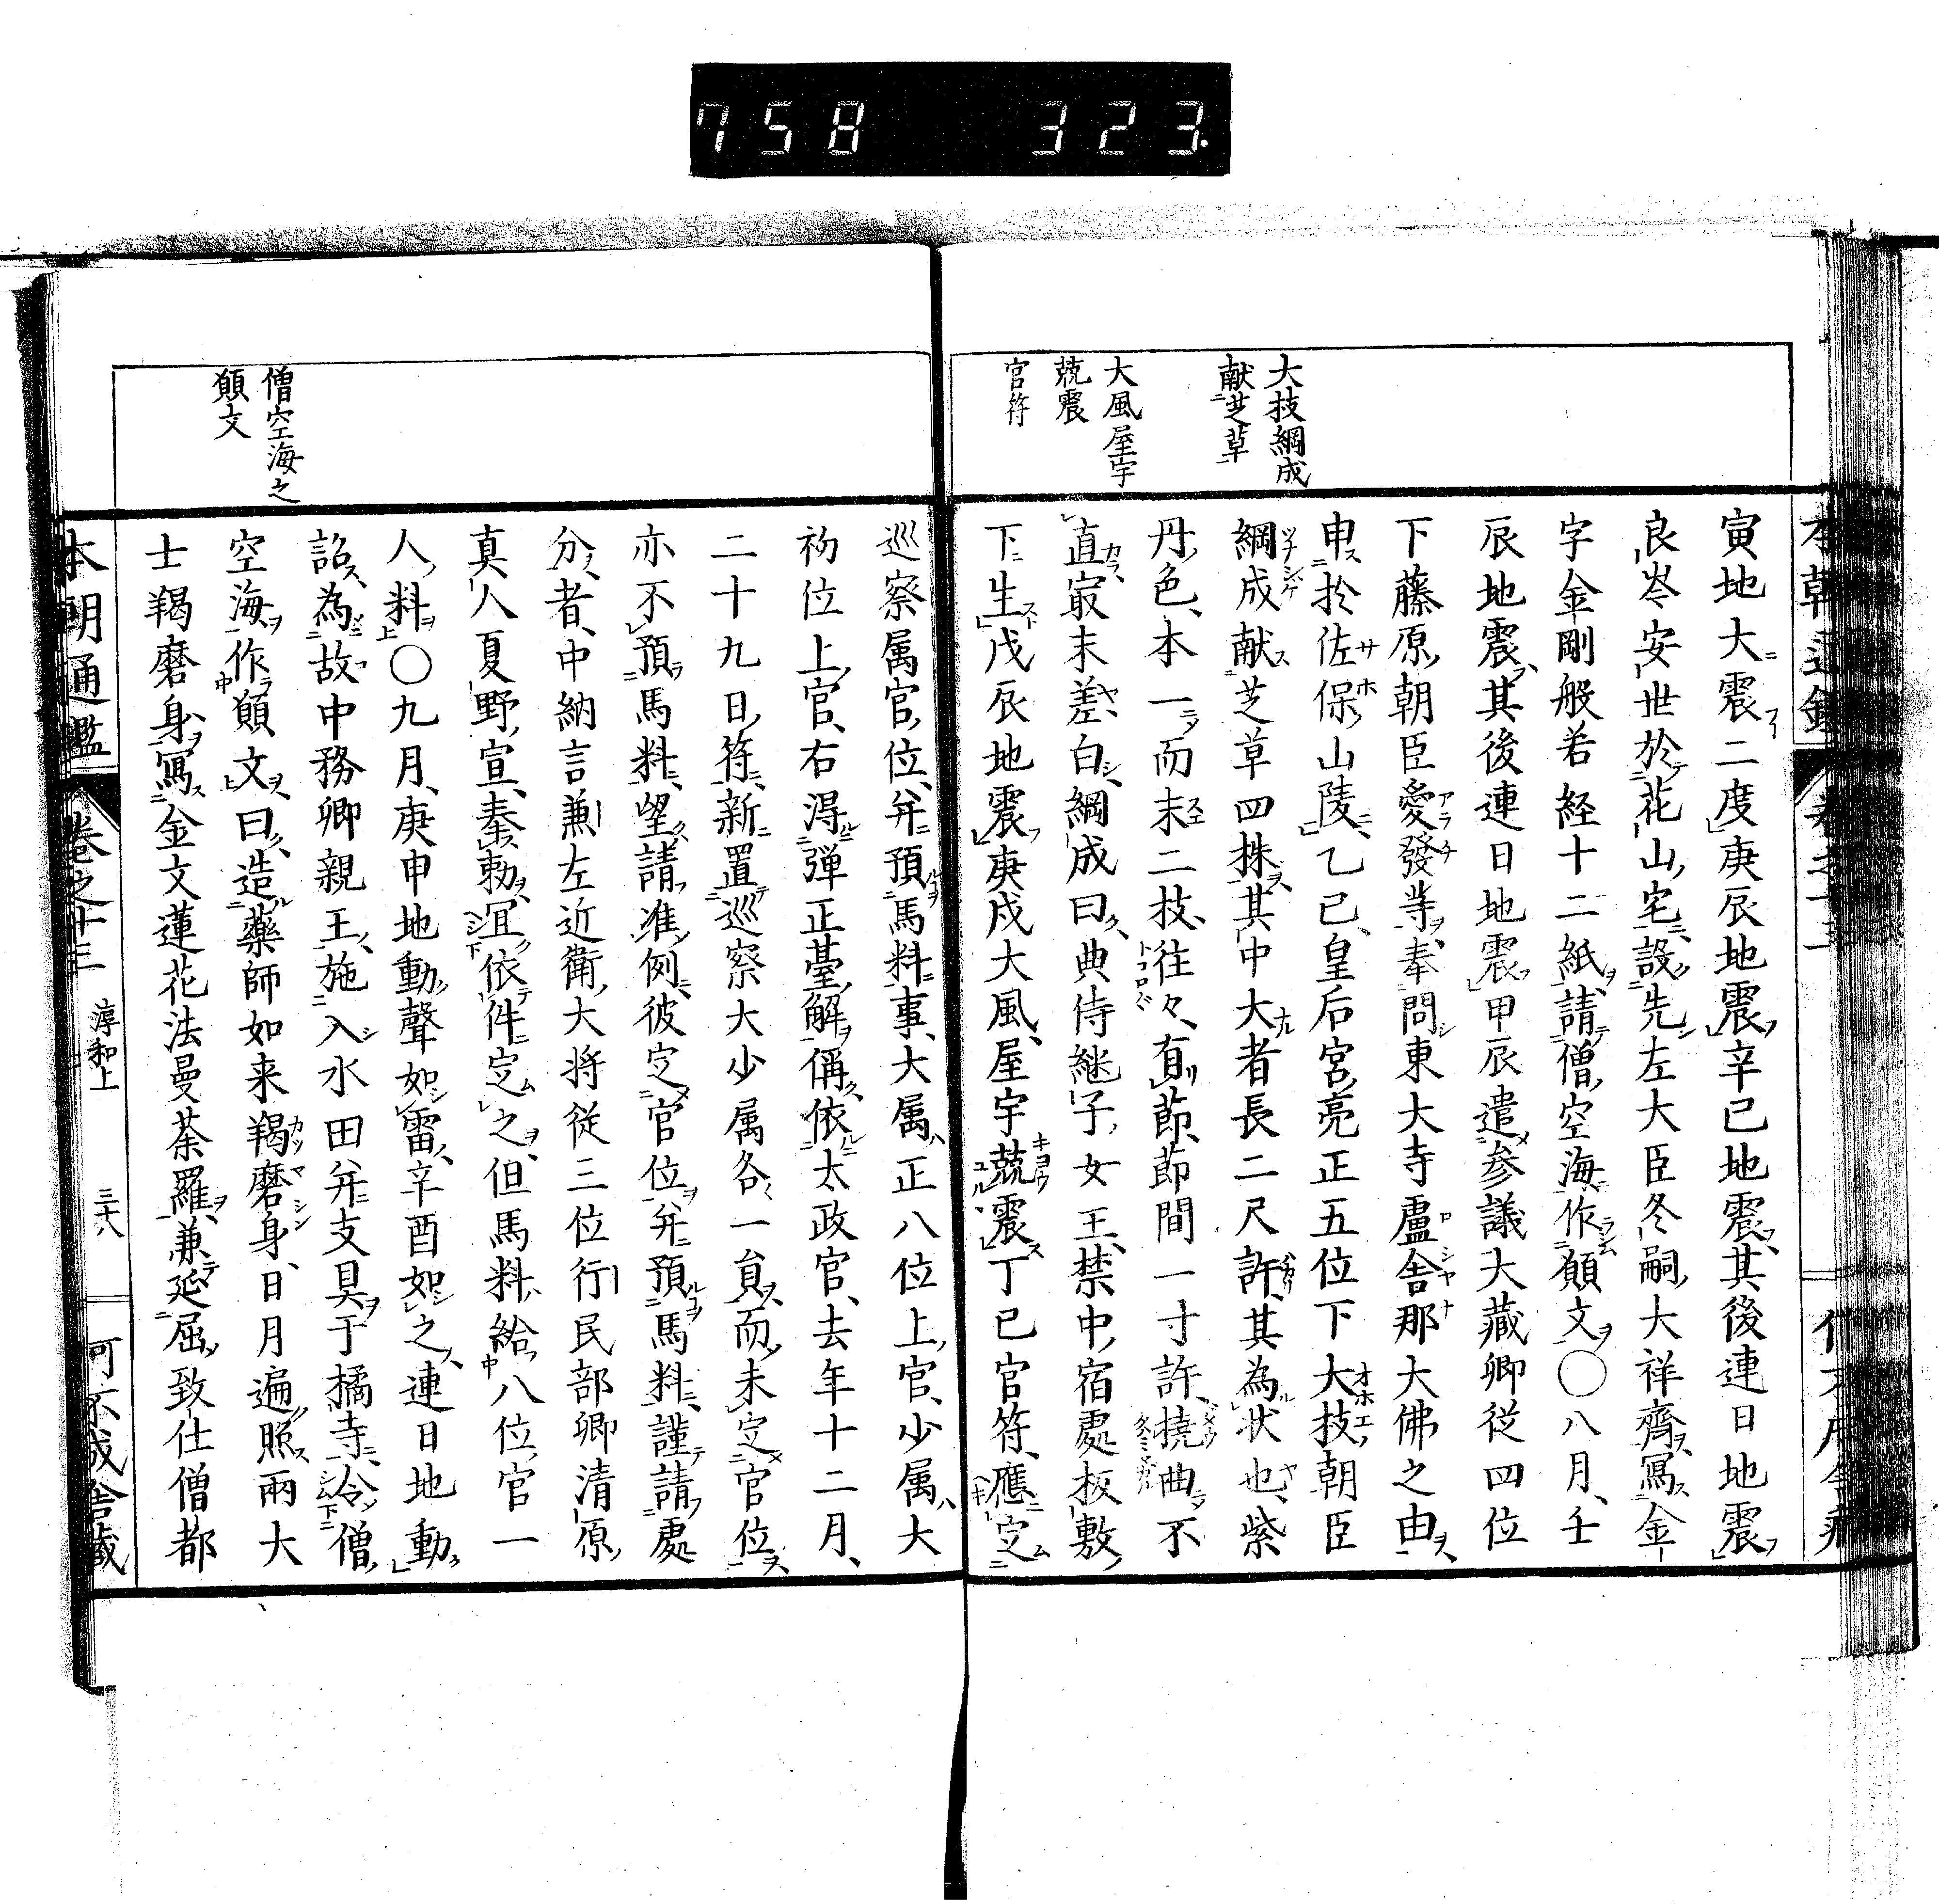 758 323.
大技綱成
献芝草
大風屋宇
兢震
官符
寅地大震二度庚辰地震辛巳地震其後連日地震
良岑安世於花山宅設先左大臣冬嗣大祥齊冩金
字金剛般若経十二紙請僧空海作願文〇八月壬
辰地震其後連日地震甲辰遣参議大藏卿従四位
下藤原朝臣愛發等奉問東大寺盧舎那大佛之由
申於佐保山陵乙巳皇后宮亮正五位下大技朝臣
綱成献芝草四株其中大者長二尺許其為状也紫
丹色本一而末二技往々有節節間一寸許撓曲不
直冣末差白綱成曰典侍継子女王禁中宿處板敷
下生戊辰地震庚戌大風屋宇兢震丁巳官符應定
巡察属官位并預馬料事大属正八位上官少属大
初位上官右得彈正臺解稱依太政官去年十二月
二十九日符新置巡察大少属各一員而未定官位
亦不預馬料望請准例彼定官位并預馬料謹請處
分者中納言兼左近衛大将従三位行民部卿清原
真人夏野宣奏勅宜依件定之但馬料給八位官一
人料〇九月庚申地動聲如雷辛酉如之連日地動
詔為故中務卿親王施入水田并支具于橘寺令僧
空海作願文曰造藥師如来羯磨身日月遍照兩大
士羯磨身冩金文蓮花法曼荼羅兼延屈致仕僧都
僧空海之
願文
本朝通鑑 卷之十三 淳和上 三十八 可不成舎藏